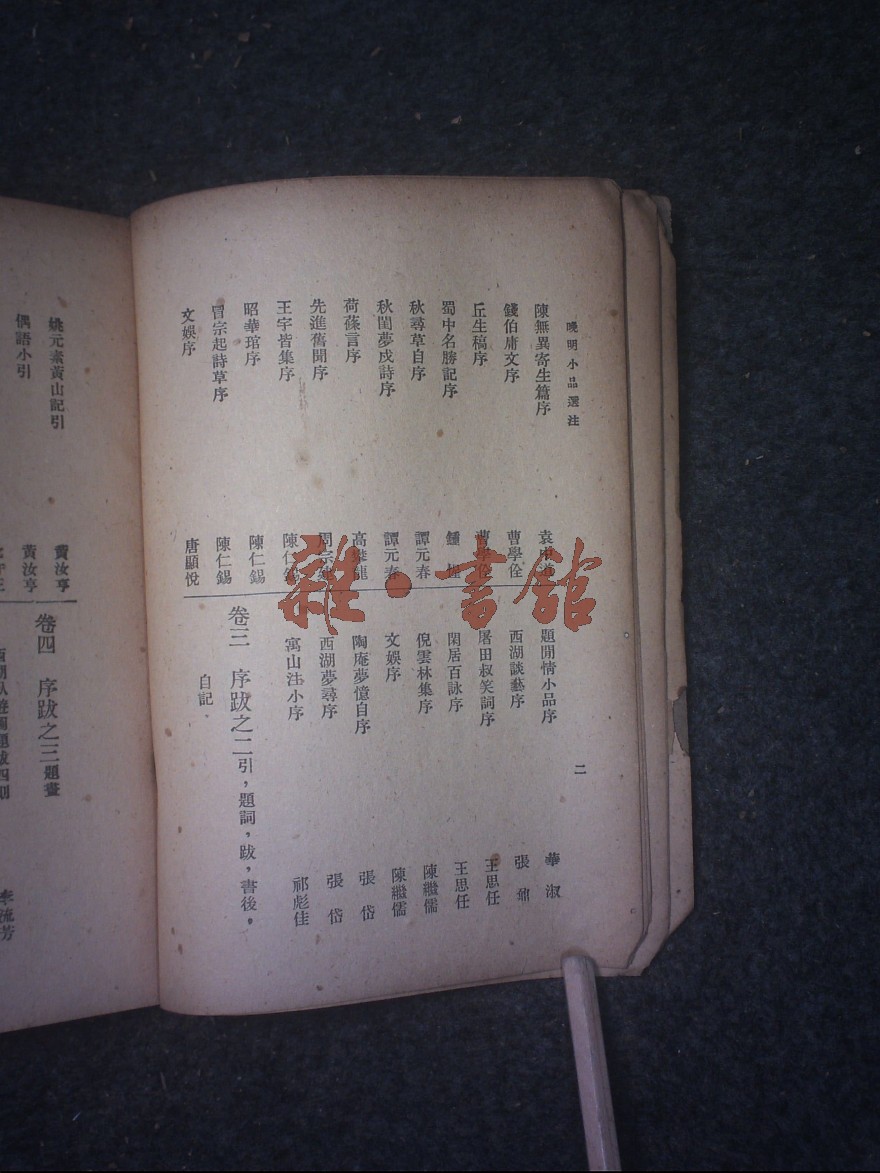 晚明小品選注
二
陳無異寄生篇序
錢伯庸文序 曹學佺
丘生稿序 曹學佺
蜀中名勝記序 鍾惺
秋尋草自序 譚元春
秋閨夢戍詩序 譚元春
荷蓧言序 高攀龍
先進舊聞序 周宗建
王宇皆集序 陳仁錫
昭華琯序 陳仁錫
冒宗起詩草序 陳仁錫
文娛序 唐顯悅
題閒情小品序 華淑
西湖談藝序 張鼐
屠田叔笑詞序 王思任
閑居百詠序 王思任
倪雲林集序 陳繼儒
文娛序 陳繼儒
陶庵夢憶自序 張岱
西湖夢尋序 張岱
寓山注小序 祁彪佳
卷三 序跋之二引，題詞，跋，書後，
自記
姚元素黃山記引 黃汝亨
偶語小引 黃汝亨
卷四 序跋之三題畫
李流芳
雜·書館